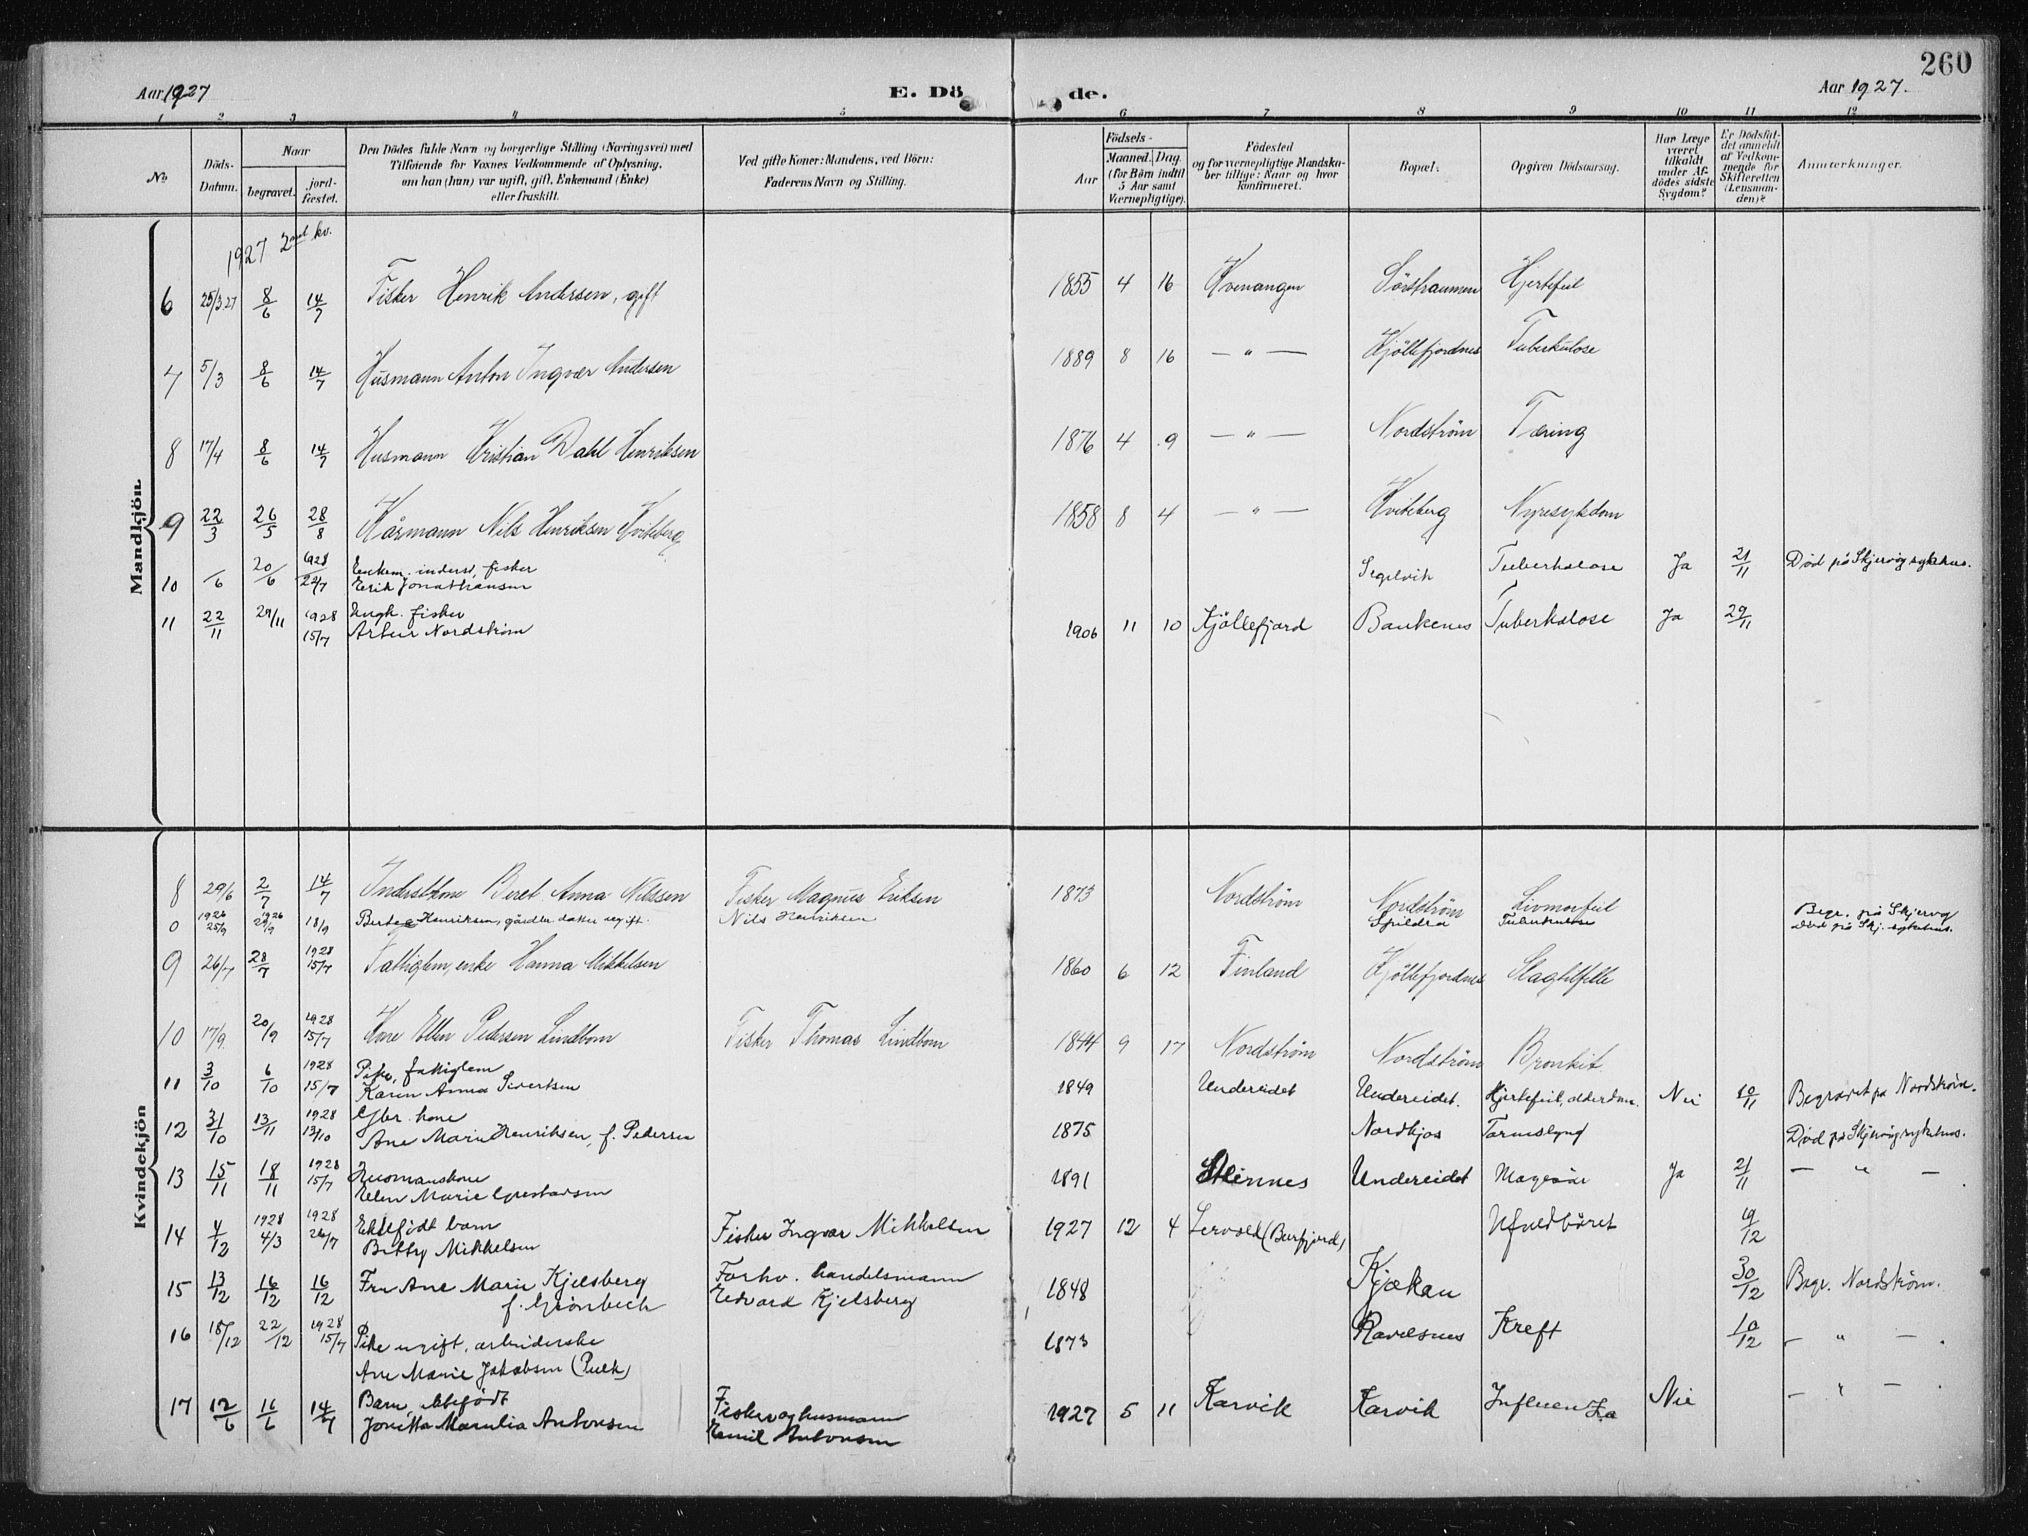 260
Aar 1927
E. Dö de.
Aar 1927.
1 2 3 4 5 6 7 8 9 10 11 12
No
Döds-Datum.
Naar
begravet.
jord-fæstet.
Den Dödes fulde Navn og borgerlige Stilling (Næringsvei) med
Tilföiende for Voxnes Vedkommende af Oplysning,
om han (hun) var ugift, gift, Enkemand (Enke)
eller fraskilt.
Ved gifte Koner: Mandens, ved Börn:
Faderens Navn og Stilling.
Födsels-
Aar
Maaned. Dag
(for Börn indtil
5 Aar samt
Værnepligtige).
Födested
og for værnepligtige Mandska-
ber tillige: Naar og hvor
konfirmeret.
Bopæl:
Opgiven Dödsaarsag.
Har Læge
været
tilkaldt
under Af-
dödes sidste
Sygdom?
Er Dödsfal-
det anmeldt
af Vedkom-
mende for
Skifteretten
(Lensman-
den)?
Anmærkninger.
Mandkjön.
1927 2net kv.
6 25/3 27 8/6 14/7 Fisker Henrik Andersen, gift 1855 4 16 Kvenangen Sörstraumen Hjertefeil
7 5/3 8/6 14/7 Husmann Anton Ingvar Andersen 1889 8 16 — " — Kjöllefjordnes Tuberkulose
8 17/4 8/6 14/7 Husmann Kristian Dahl Henriksen 1876 4 9 — " — Nordström Tæring
9 22/3 26/5 28/8 Kårmann Nils Henriksen Kviteberg 1858 8 4 — " — Kviteberg Nyresykdom
10 /6 20/6 1928 22/7 Enkem. inderst, fisker
Erik Jonathansen Segelvik Tuberkulose Ja 21/11 Död på Skjervöy sykehus.
11 22/11 29/11 1928 15/7 Ungk. fisker
Artur Nordström 1906 11 10 Kjöllefjord Baukenes Tuberkulose Ja 29/11
Kvindekjön
8 29/6 2/7 14/7 Inderstkone Beret Anna Nilssen Fisker Magnus Eriksen 1873 Nordström Nordström Livmorfeil
0 1926 25/9 1926 29/9 18/9 Henriksen, gårdbr. datter ugift. Nils Henriksen Spildra Tuberkulose Begr. på Skjervøy
Död på Skj. sykehus.
9 26/7 28/7 1928 15/7 Fattiglem, enke Hanna Mikkelsen 1860 6 12 Finland Kjöllefjordnes Slagtilfelle
10 17/9 20/9 1928 15/7 Kone Ellen Pedersen Lindbom Fisker Thomas Lindbom 1844 9 17 Nordström Nordström Bronkit
11 3/10 6/10 1928 15/7 Pike, fattiglem
Karen Anna Sivertsen 1849 Undereidet Undereidet. Hjertefeil, alderdom. Nei 10/11 Begravet på Nordström.
12 31/10 13/11 1928 13/10 Gbr. kone
Ane Marie Henriksen, f. Pedersen 1875 Nordkjos Tarmslyng Död på Skjervöy sykehus.
13 15/11 18/11 1928 15/7 Husmanskone
Ellen Marie 1891 Undereidet Magesår Ja 21/11 — " —
14 4/12 1928 4/3 1928 26/7 Ektefödt barn
Betty Mikkelsen Fisker Ingvar Mikkelsen 1927 12 4 (Burfjord) Ufuldbåret 19/12
15 13/12 16/12 16/12 Fru Ane Marie Kjelsberg
f. Grönbech Forhv. handelsmann
Edvard Kjelsberg 1848 Kjækan 30/12 Begr. Nordström.
16 18/12 22/12 1928 15/7 Pike ugift, arbeiderske
Ane Marie Jakobsen (Pulk) 1873 Ravelsnes Kreft 10/12 — " — .
17 12/6 16/6 14/7 Barn, ektefödt
Jonetta Marelia Antonsen Fisker og husmann
Emil Antonsen 1927 5 11 Karvik Karvik Influenza Nei — " — .